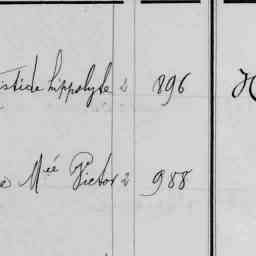 istide hippolyte 2 896
e Mée Victor 2 988